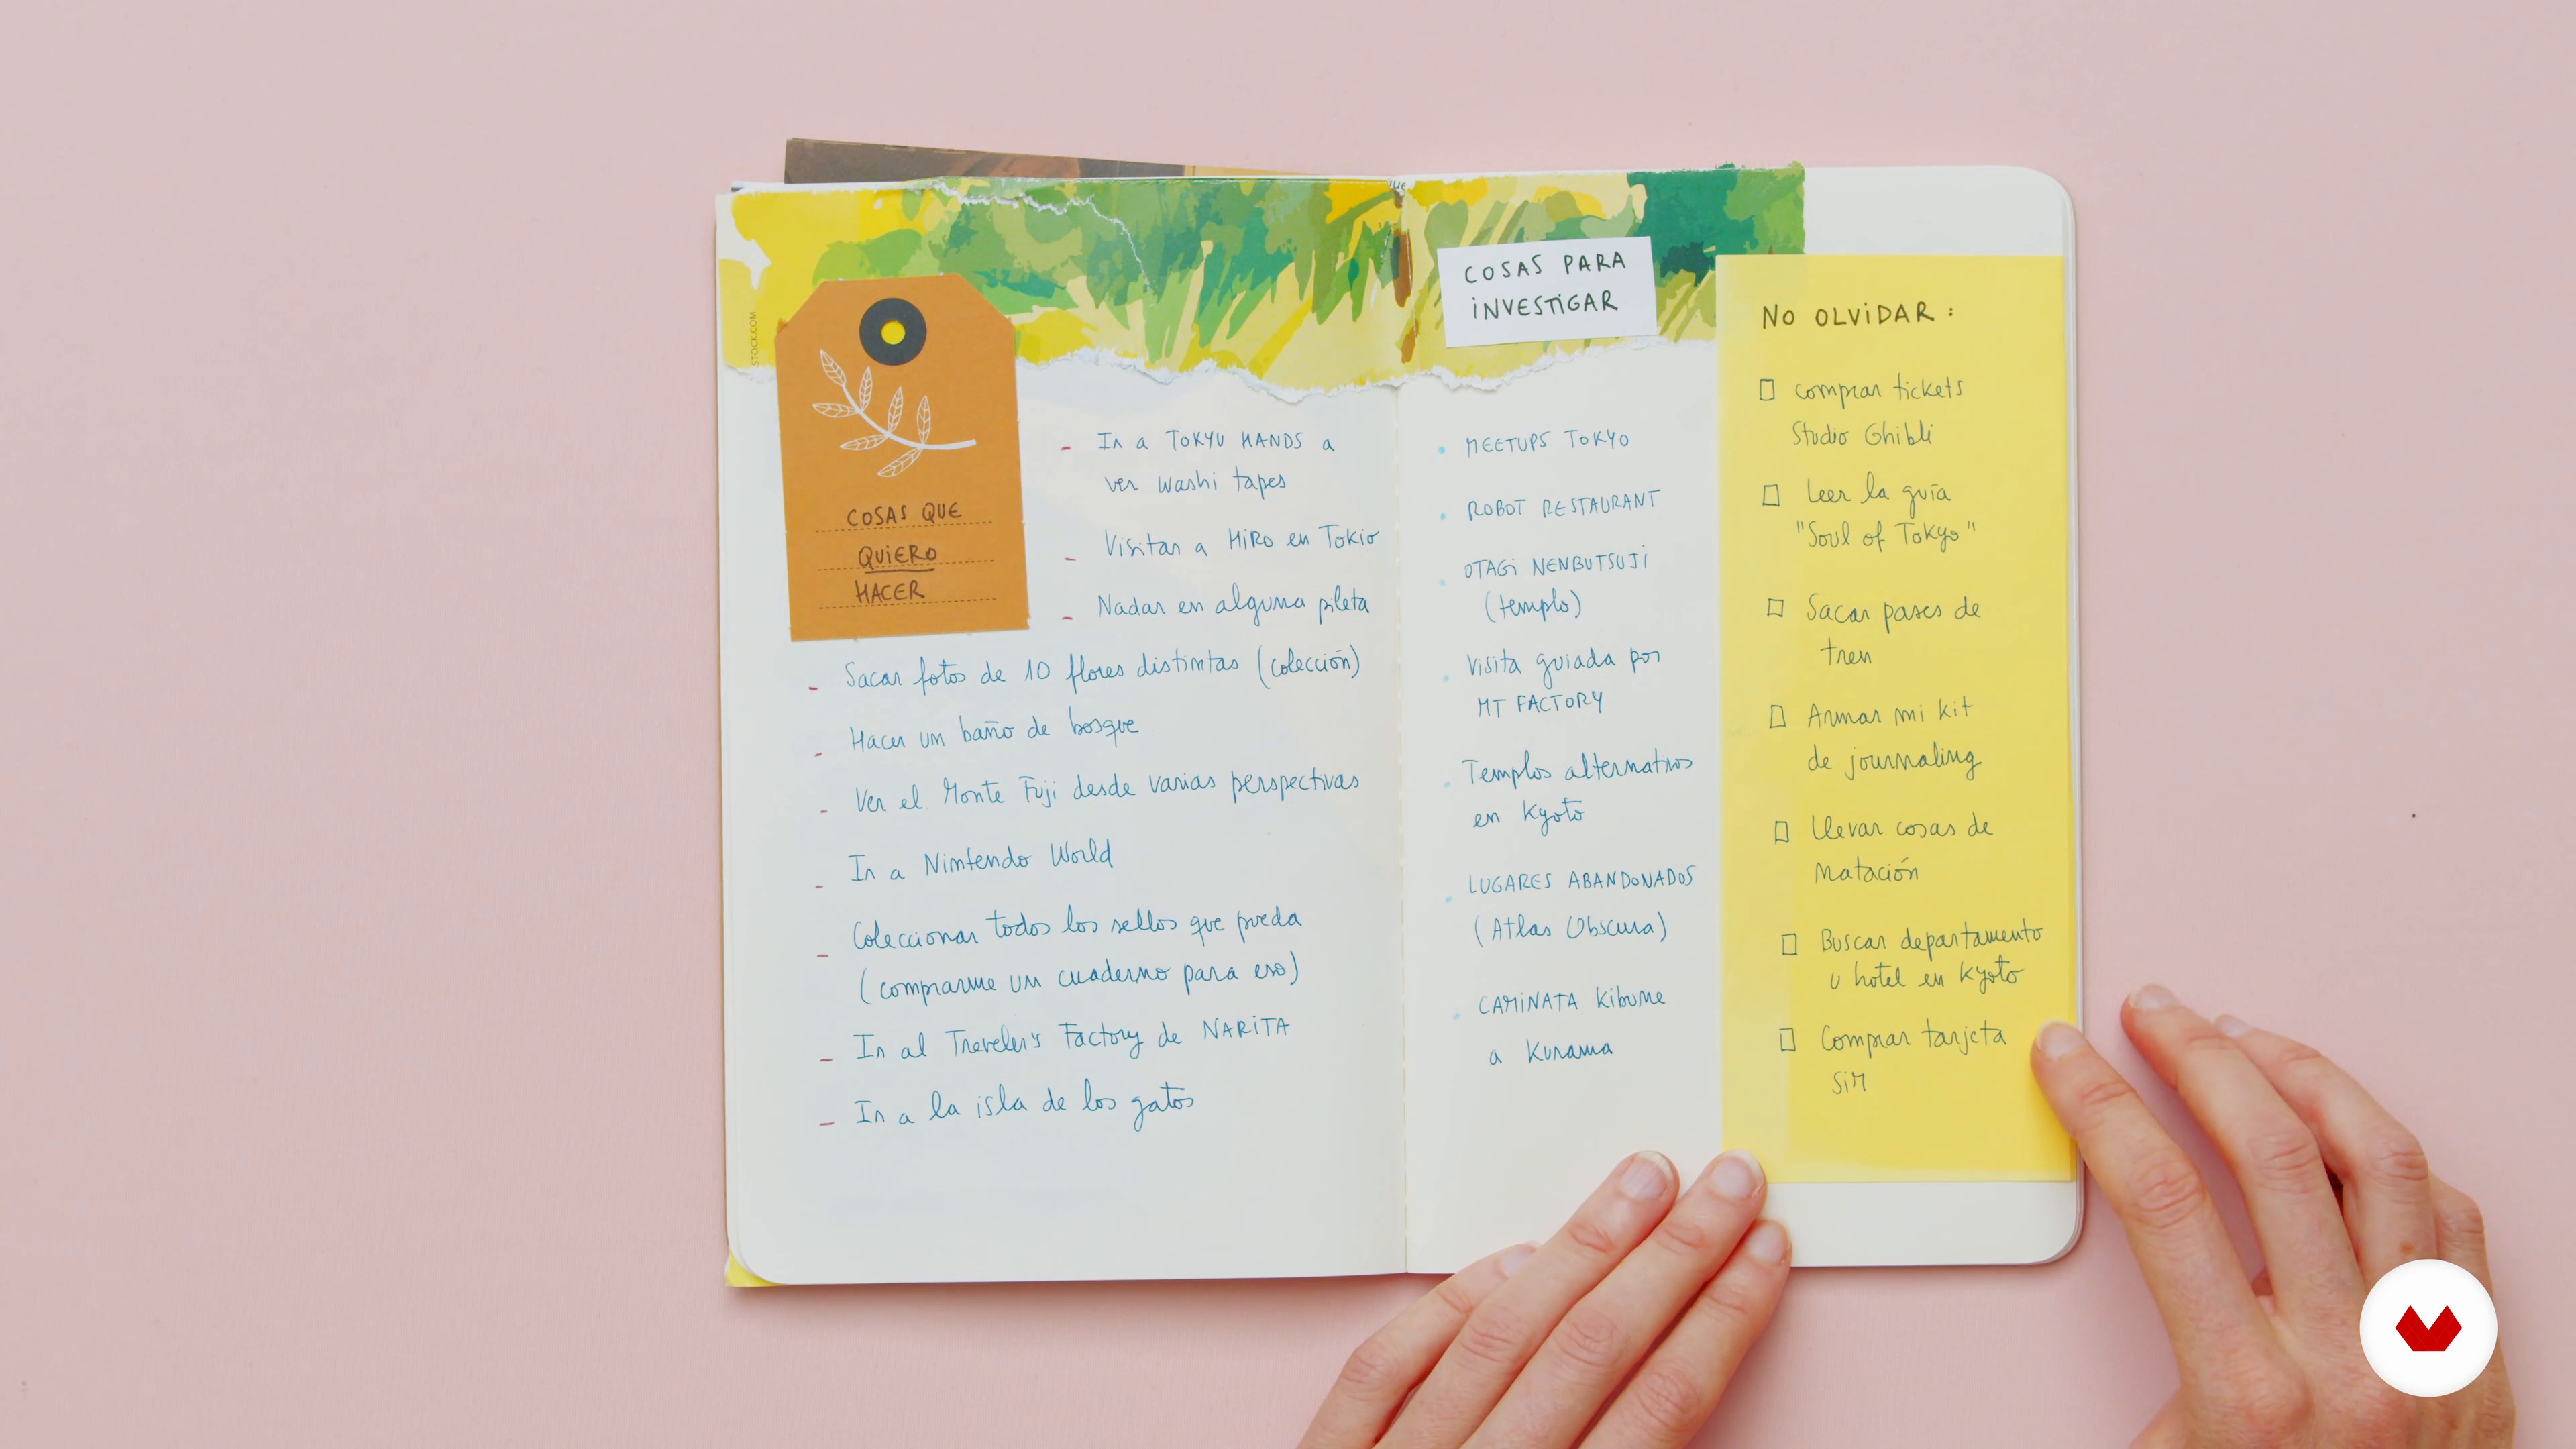 STOCK.COM
COSAS QUE
QUIERO
HACER
- Ir a TOKYU HANDS a
ver washi tapes
- Visitar a HiRO en Tokio
- Nadar en alguna pileta
- Sacar fotos de 10 flores distintas (colección)
- Hacer un baño de bosque
- Ver el Monte Fuji desde varias perspectivas
- Ir a Nintendo World
- Coleccionar todos los sellos que pueda
(comprarme un cuaderno para eso)
- Ir al Treveler's Factory de NARITA
- Ir a la isla de los gatos
COSAS PARA
iNVESTiGAR
• MEETUPS TOKYO
• ROBOT RESTAURANT
• OTAGi NENBUTSUJi
(templo)
• Visita guiada por
MT FACTORY
• Templos alternativos
en Kyoto
• LUGARES ABANDONADOS
(Atlas Obscura)
• CAMiNATA Kibune
a Kurama
NO OLViDAR:
☐ comprar tickets
Studio Ghibli
☐ Leer la guía
"Soul of Tokyo"
☐ Sacar pases de
tren
☐ Armar mi kit
de journaling
☐ Llevar cosas de
Natación
☐ Buscar departamento
u hotel en Kyoto
☐ Comprar tarjeta
SiM